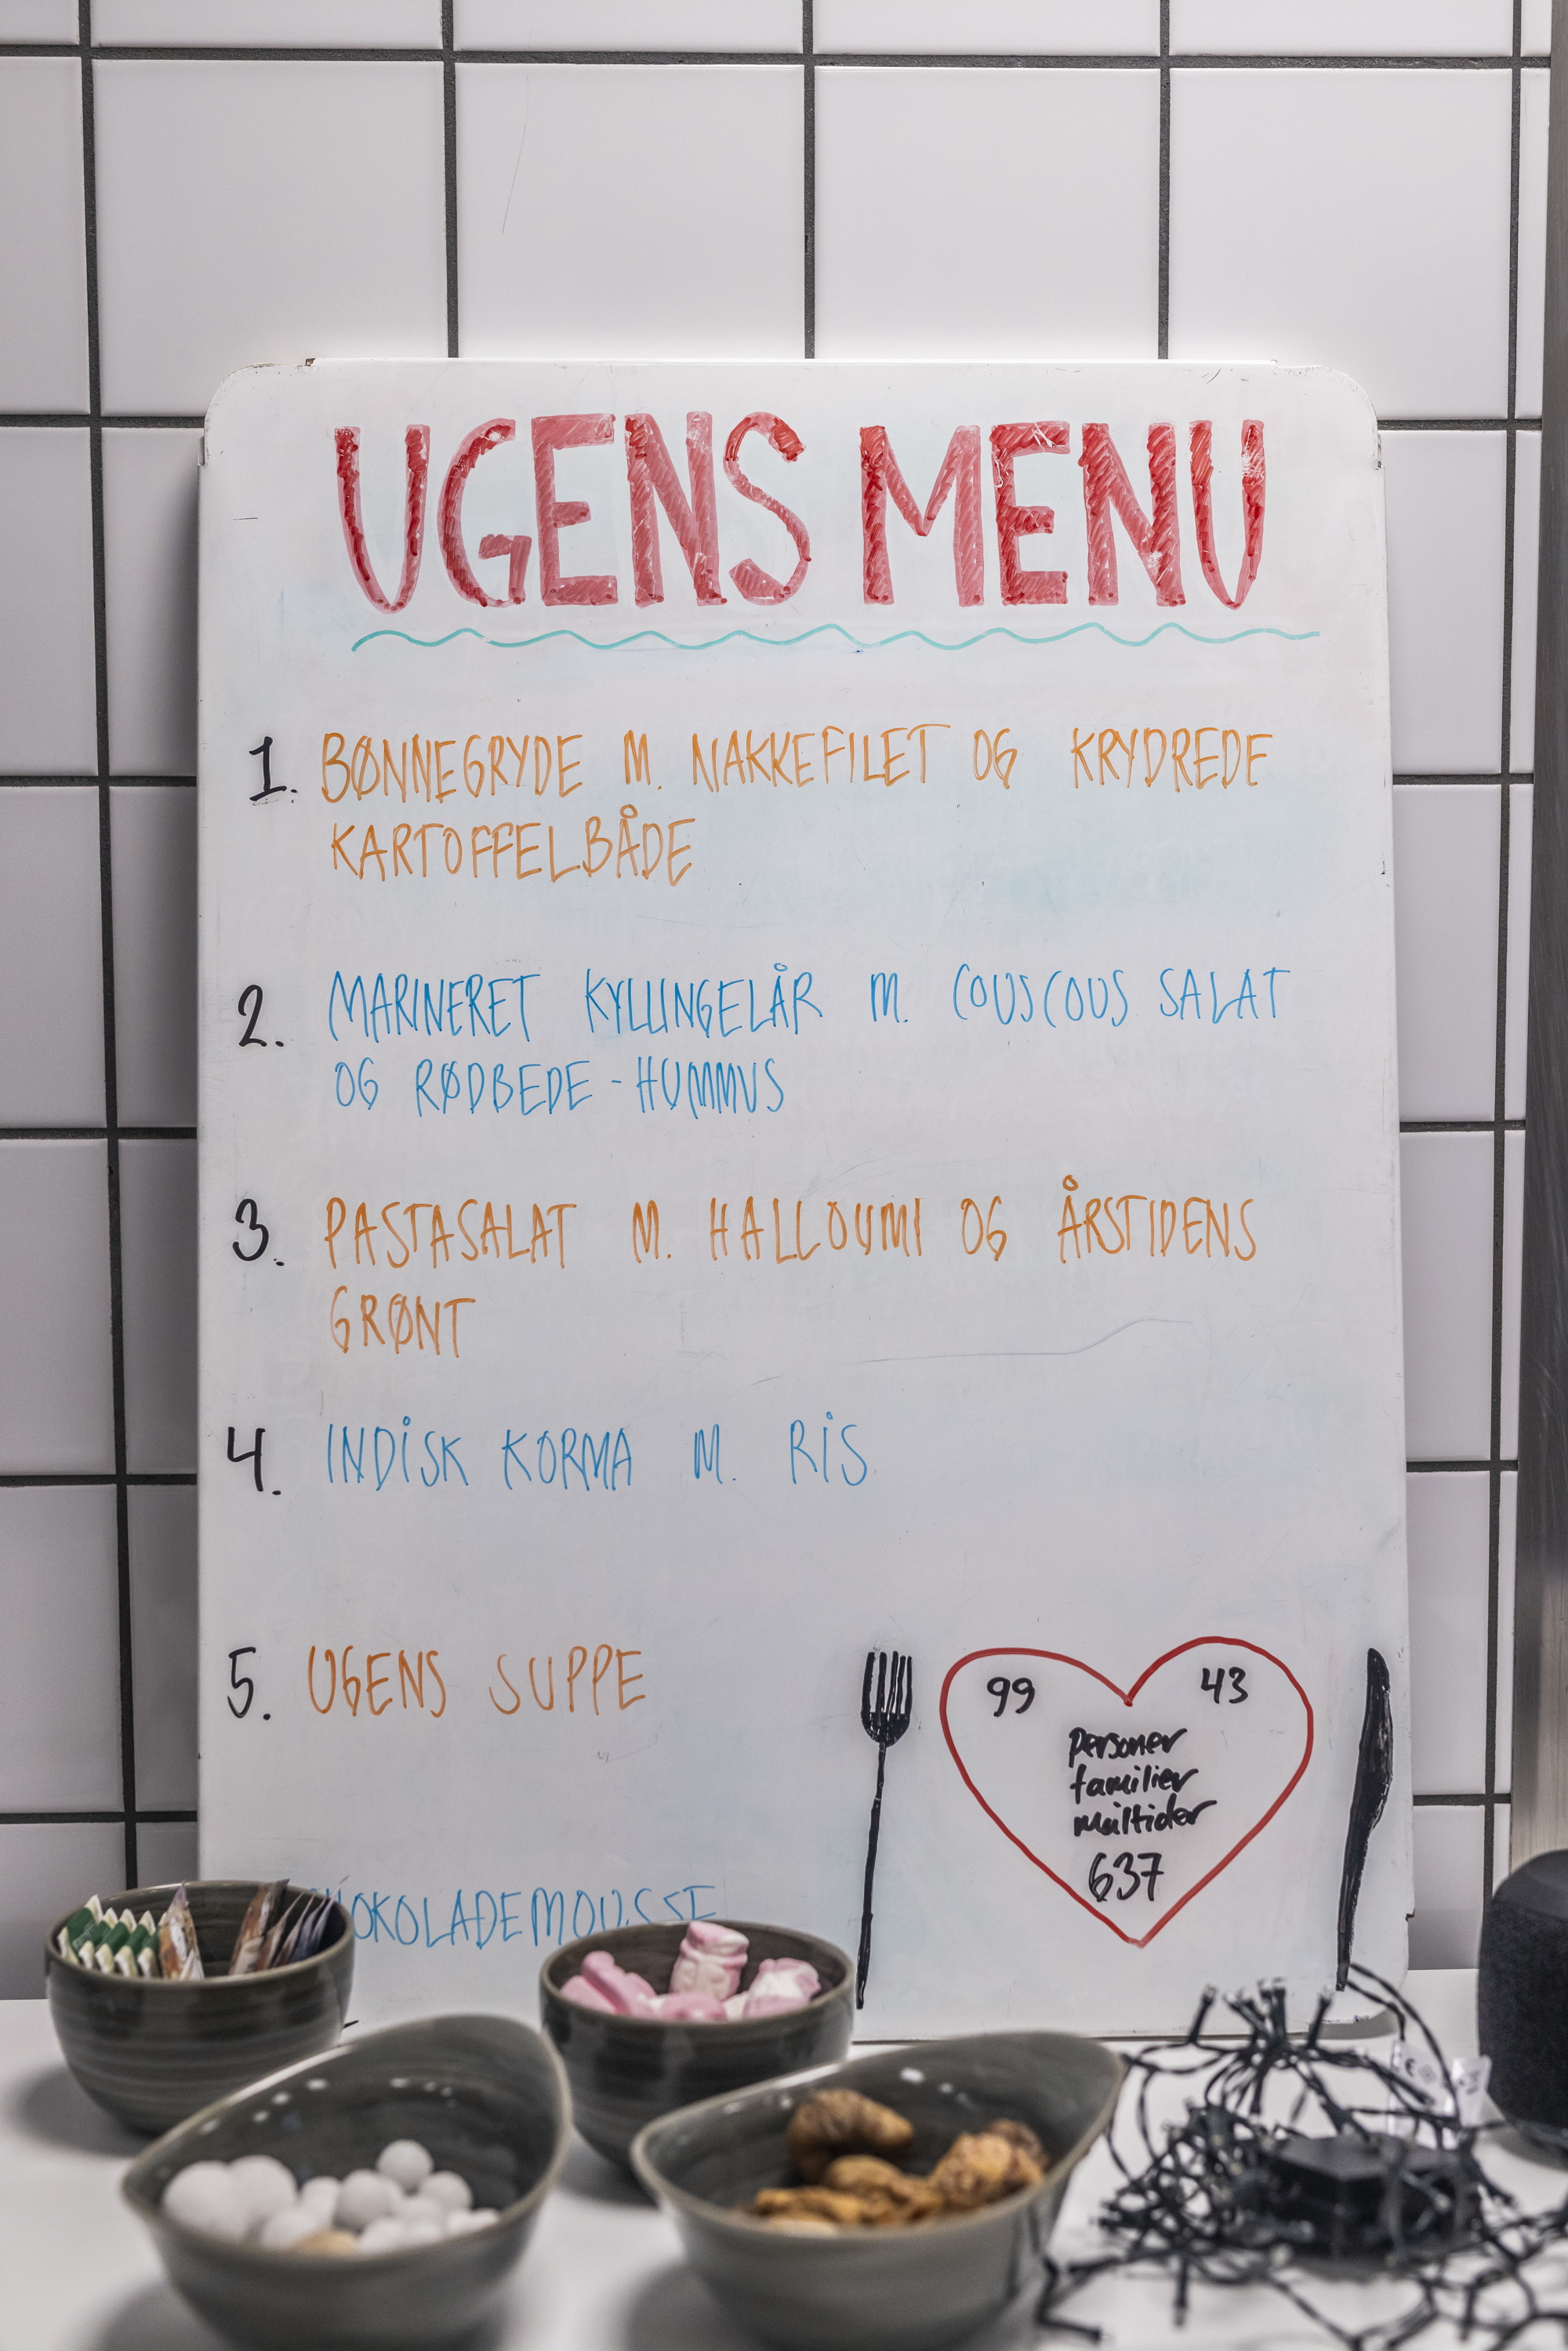 UGENS MENU
1. BØNNEGRYDE M. NAKKEFILET OG KRYDREDE
KARTOFFELBÅDE
2. MARINERET KYLLINGELÅR M. COUSCOUS SALAT
OG RØDBEDE-HUMMUS
3. PASTASALAT M. HALLOUMI OG ÅRSTIDENS
GRØNT
4. INDISK KORMA M. RIS
5. UGENS SUPPE
99 43
personer
familier
måltider
637
CHOKOLADEMOUSSE